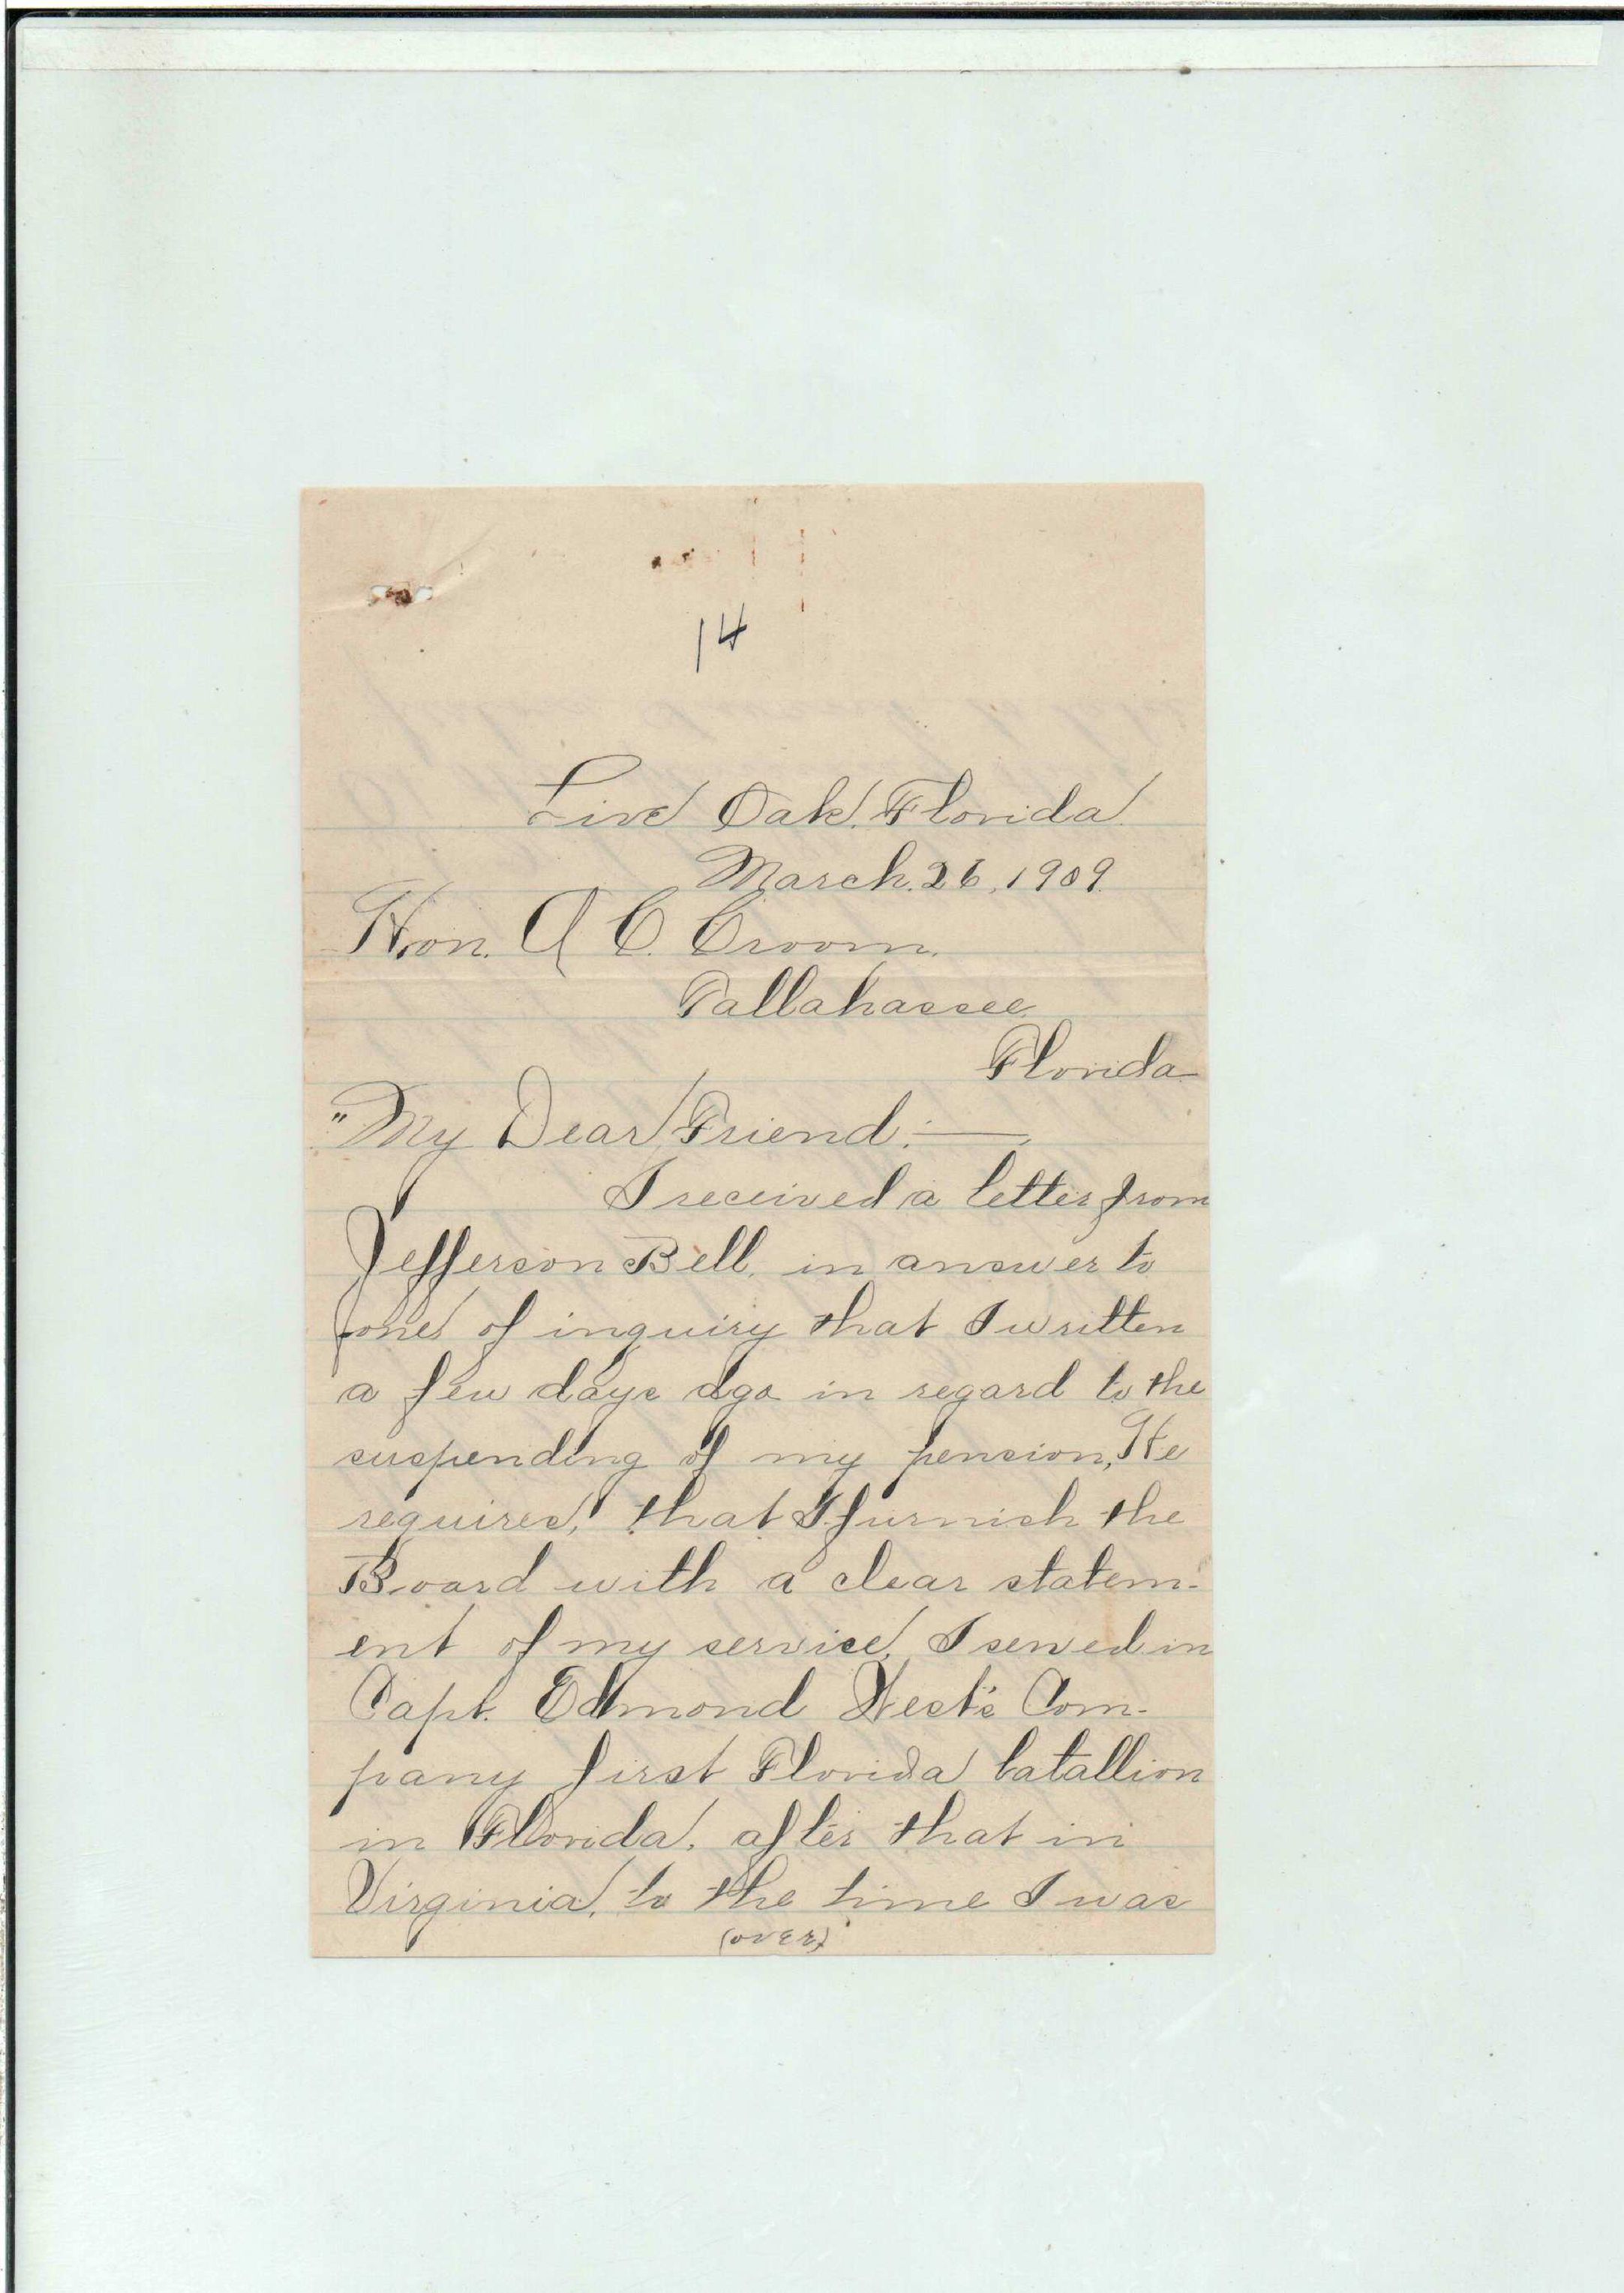 14
Live Oak, Florida.
March. 26, 1909.
Hon. A C. Croom.
Tallahassee.
Florida
"My Dear Friend:—
I received a letter from
Jefferson Bell, in answer to
one of inquiry that I written
a few days ago in regard to the
suspending of my pension, He
requires, that I furnish the
Board with a clear statem-
ent of my service, I served in
Capt. Edmond West's Com-
pany first Florida batallion
in Florida, after that in
Virginia, to the time I was
(over)